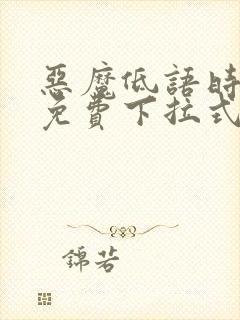 惡魔低語時
免費下拉式
錦若